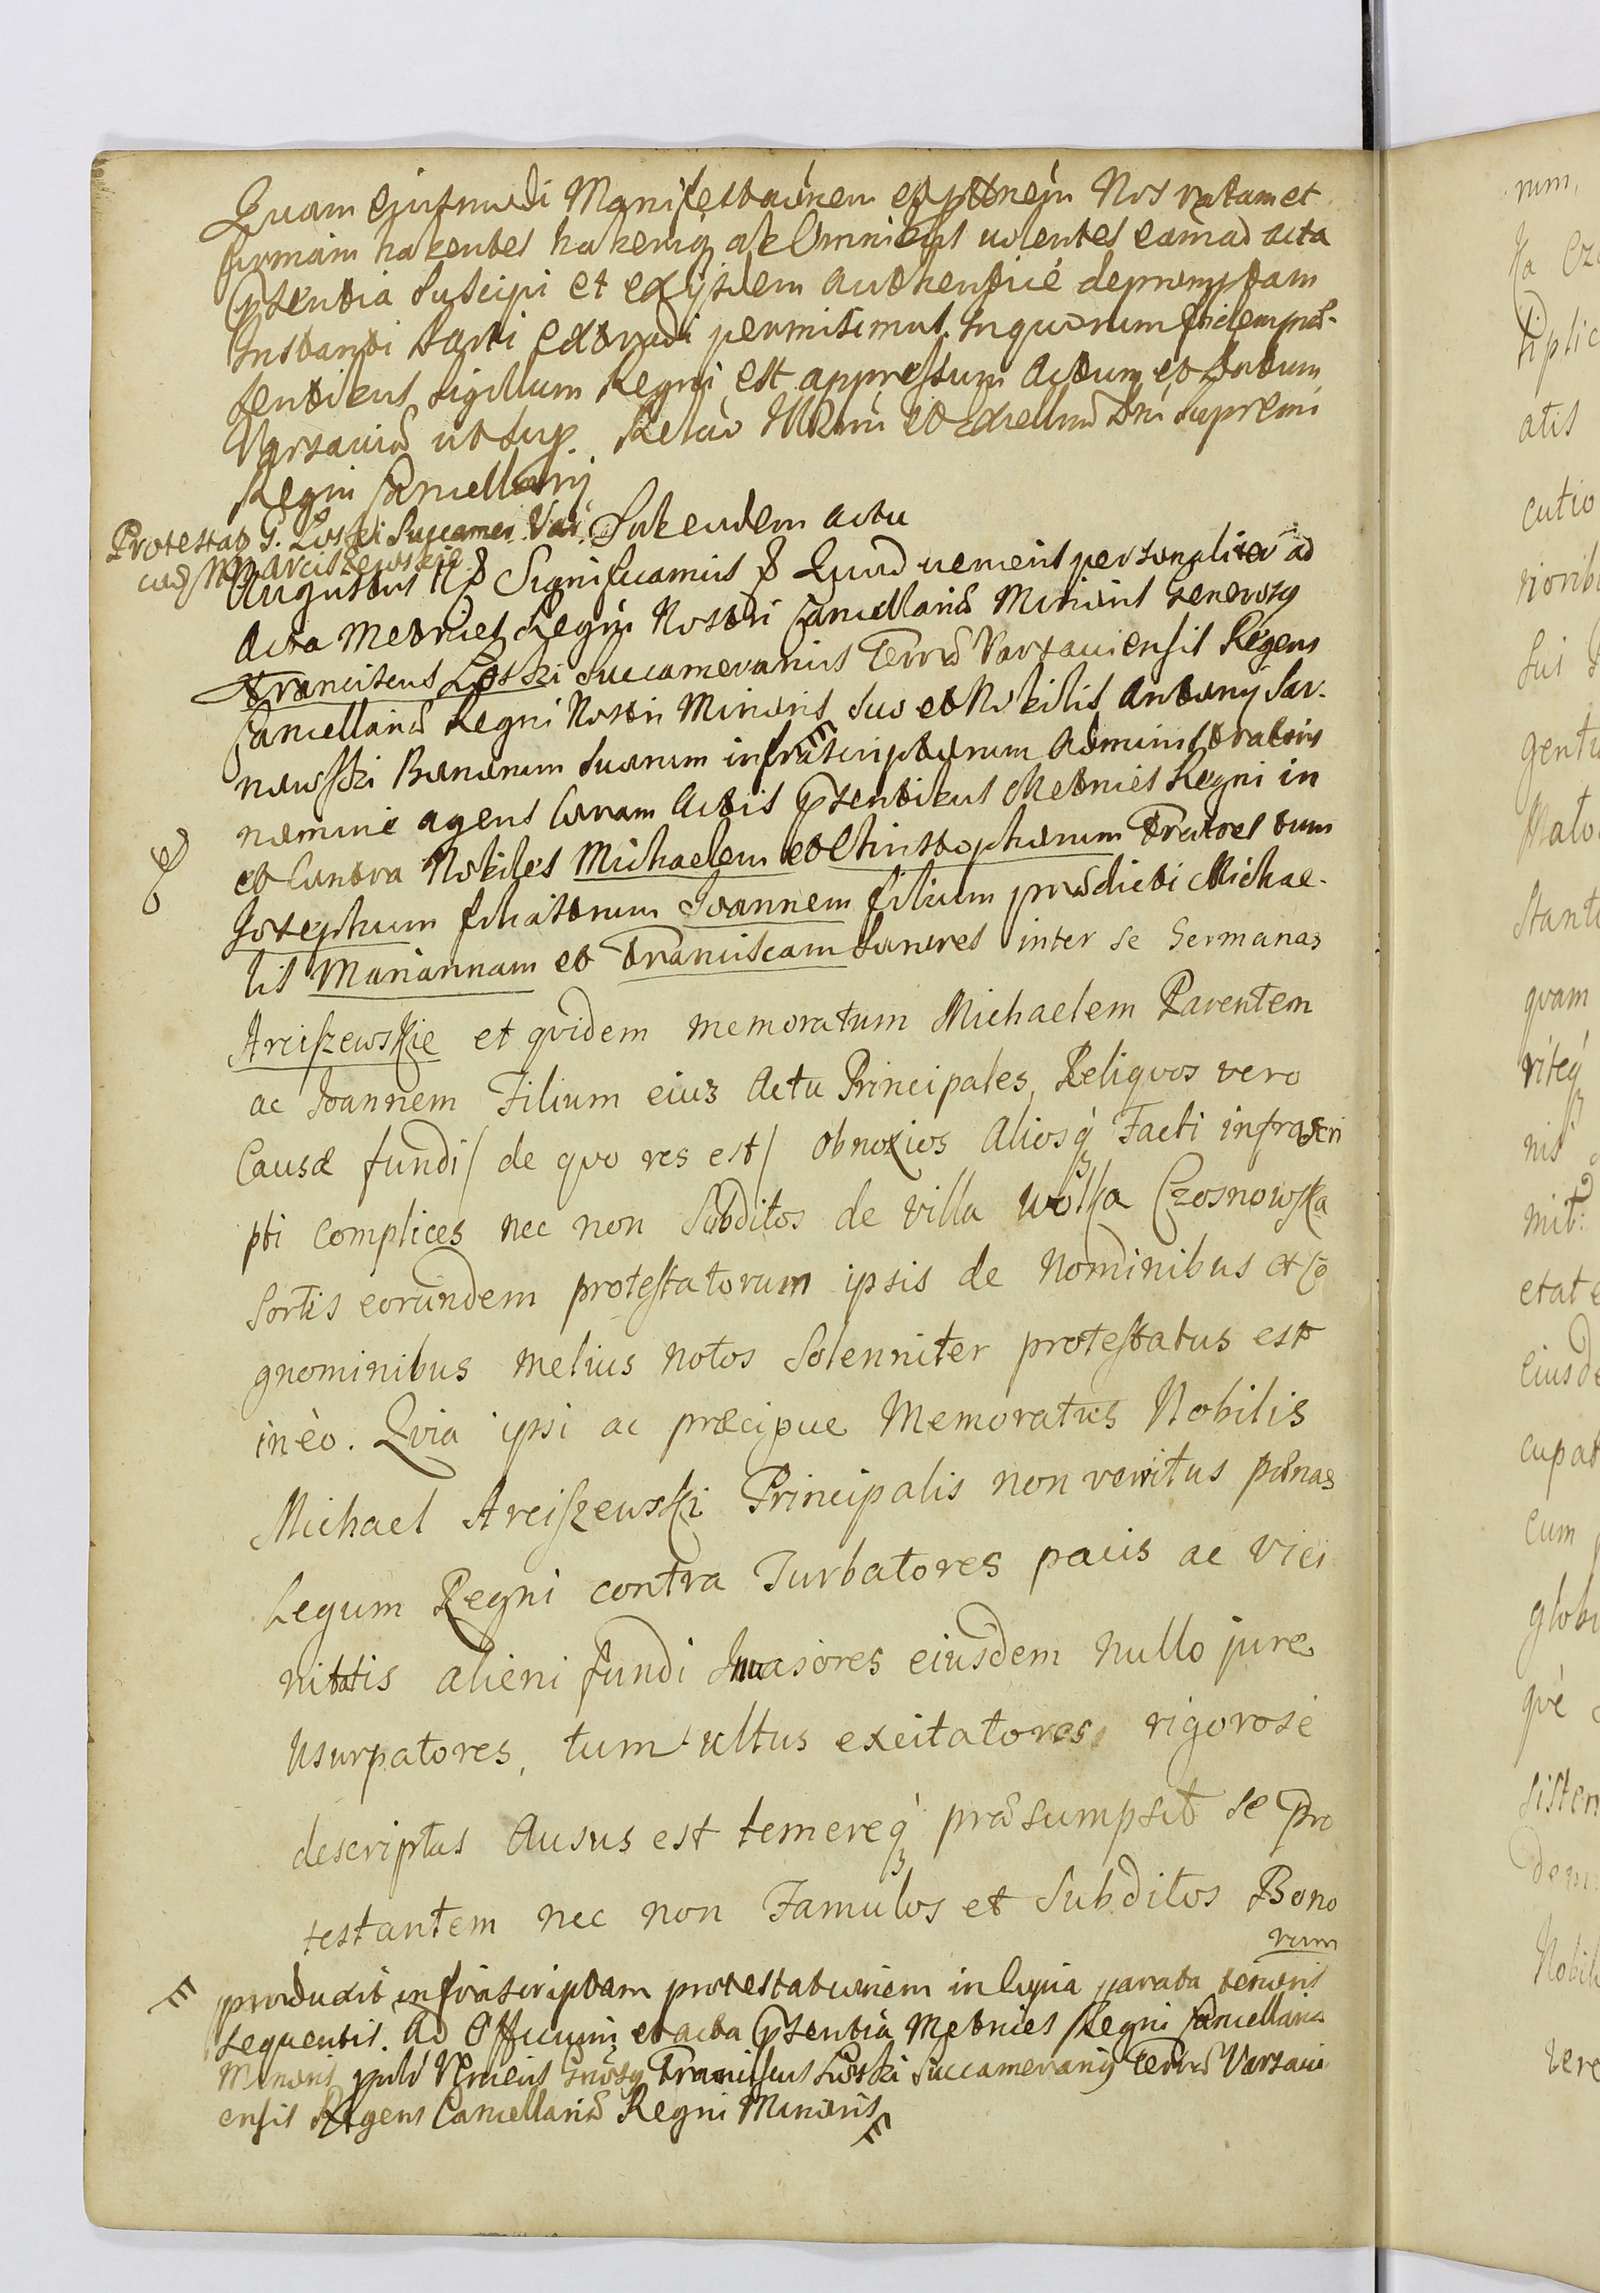 Quam ejusmodi Manifestaõnem et ptõnem Nos ratam et
firmam habentes haberiq ab Omnibus volentes eam ad acta
pntia suscipi et ex ijsdem authentice depromptam
Instanti Parti extradi permisimus. In quorum fidem præ-
sentibus sigillum Regni est appressum Actum et datum
Varsaviæ ut sup. Relaõ Illmi et Excellmi Dni Supremi
Regni Cancellarij
Protestaõ G. Loski Succamer. Var.
ca N Arciszewskie
Sub eodem actu
Augustus II & Significamus & Quod veniens personaliter ad
Acta Metrices Regni Nostri Cancellariæ Minoris Generosq
Franciscus Loski Succamerarius Terræ Varsaviensis Regens
Cancellariæ Regni Nostri Minoris suo et Nobilis Antonij Sar-
nowski Bonorum suorum infrascriptorum Administratoris
nomine agens Coram Actis pntibus Metrices Regni in
et Contra Nobiles Michaelem et Christophorum Fratres tum
Josephum filiastrum Joannem filium prædicti Michae-
lis Mariannam et Franciscam Sorores inter se Germanas
Arciszewskie et qvidem memoratum Michaelem Parentem
ac Joannem Filium eius Actu Principales, Reliqvos vero
Causæ fundi / de qvo res est / obnoxios Aliosq Facti infrascri
pti complices nec non Subditos de villa Wolka Czosnowska
Sortis eorundem protestatorum ipsis de Nominibus et Co
gnominibus melius notos Solenniter protestatus est
in eo. Qvia ipsi ac præcipue Memoratus Nobilis
Michael Arciszewski Principalis non veritus pænas
Legum Regni contra Turbatores pacis ac vici
nitatis alieni fundi Invasores eiusdem nullo jure
Usurpatores, tumultus excitatores, rigorose
descriptas Ausus est temereq præsumpsit se Pro
testantem nec non Famulos et Subditos Bono
rum
produxit infrascriptam protestationem in copia parata tenoris
sequentis. Ad Officium et acta pntia Metrices Regni Cancellariæ
Minoris Veniens Gnosq Franciscus Loski Succamerarij Terræ Varsavi
ensis Regens Cancellariæ Regni Minoris